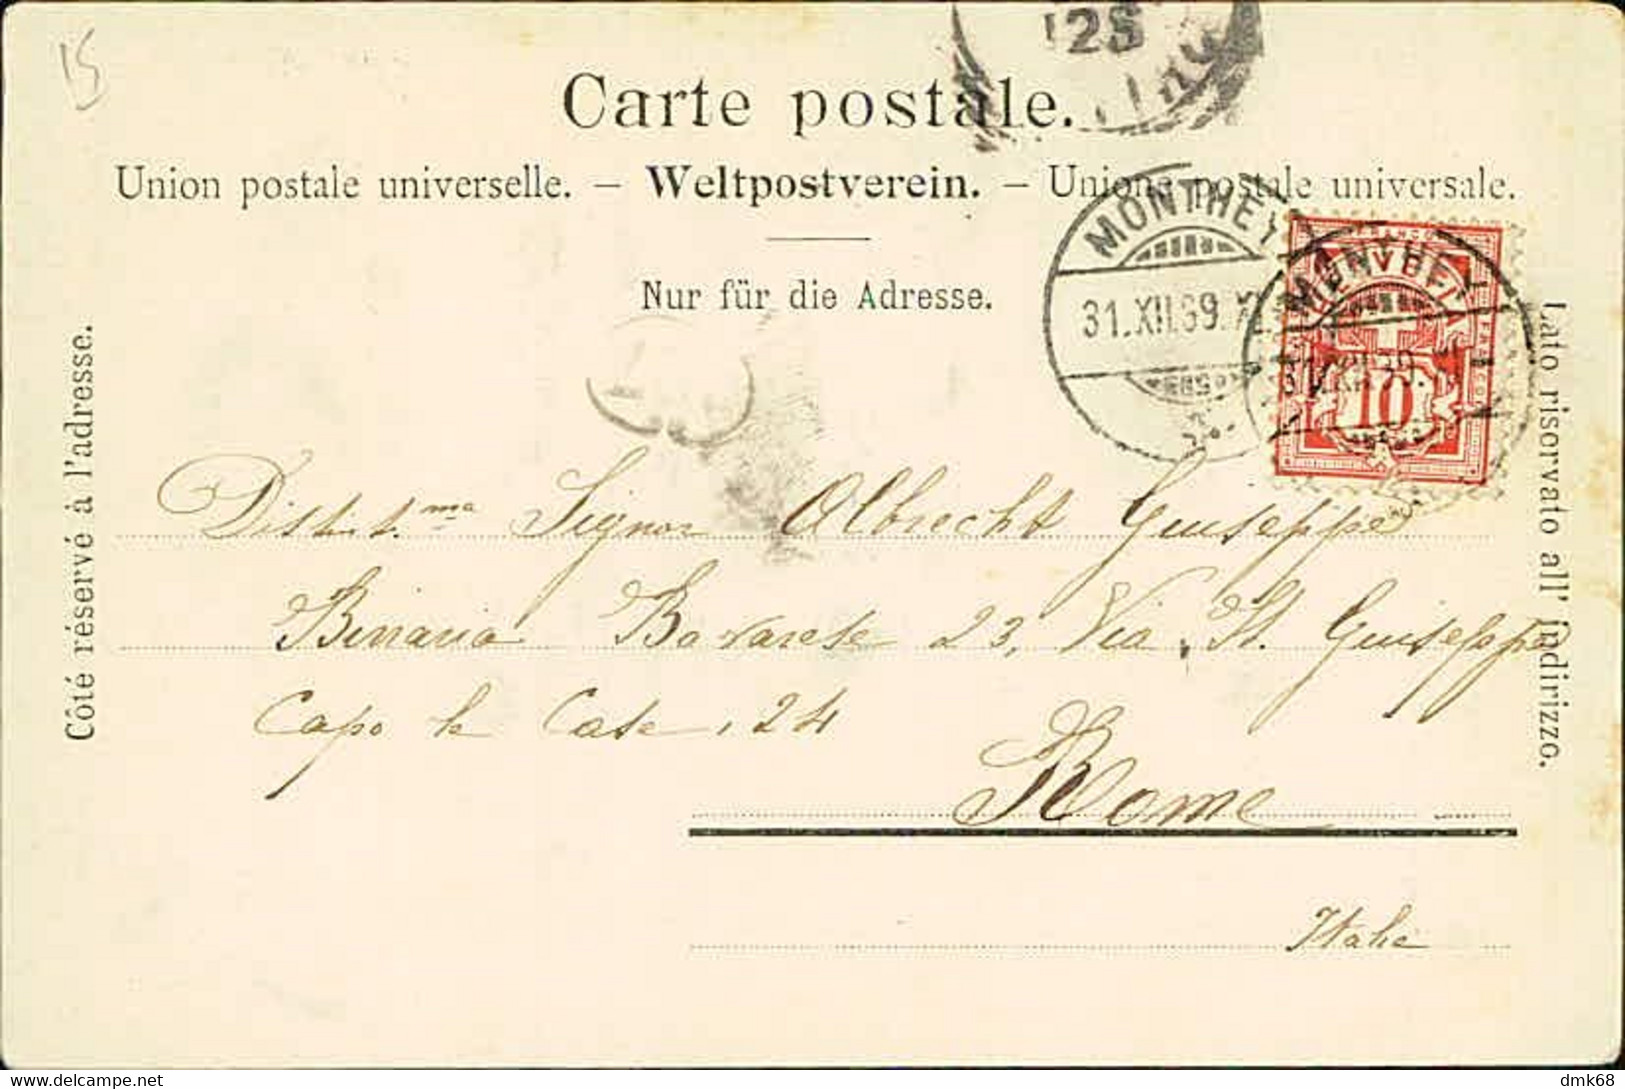 15
12S
Carte postale.
Union postale universelle. – Weltpostverein. – Unione postale universale.
Nur für die Adresse.
MONTHEY
31.XII.99.XI
MONTHEY
FRANCO
HELVETIA
10
Côté réservé à l'adresse.
Lato riservato all' indirizzo.
Distint.ma Signor Albrecht Giuseppe
Birraria Bavarese 23, Via St. Giuseppe
Capo le Case, 24
Rome
Italie
delcampe.net
dmk68